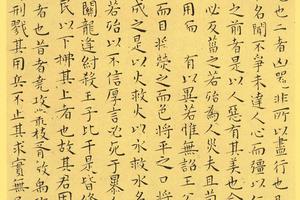 也二者凶器非所以盡行也
名聞不爭未達人心而彊以仁
之前者是以人惡有其美也命
必反菑之若殆為人菑夫且苟
用而有以異若惟無詔王公
而目將熒之色將平之口
成之是以火救火以水救水名
若殆以不信厚言必死于暴人
關龍逢紂殺王子比干是皆修
民以下拂其上者也故其君因
者也昔者堯攻叢枝胥敖禹攻
刑戮其用兵不止其求實無